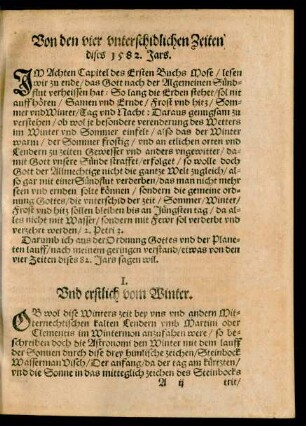 Von den vier vnterschidlichen Zeiten
dises 1582. Jars.
IM Achten Capitel des Ersten Buchs Mose / lesen
wir zu ende / das Gott nach der Algemeinen Sünd-
flut verheissen hat: So lang die Erden stehet / sol nit
auffhören / Samen vnd Ernde / Frost vnd hitz / Som-
mer vnd Winter / Tag vnd Nacht: Daraus genugsam zu
verstehen / ob wol je besondere verenderung des Wetters
im Winter vnd Sommer einfelt / also das der Winter
warm / der Sommer frostig / vnd an etlichen orten vnd
Lendern zu zeiten Gewesser vnd anders vngewitter / da-
mit Gott vnsere Sünde straffet / erfolget / so wolle doch
Gott der Allmechtige nicht die gantze Welt zugleich / al-
so gar mit einer Sündflut verderben / das man nicht mehr
seen vnd ernden solte können / sondern die gemeine ord-
nung Gottes / die vnterschid der zeit / Sommer / Winter /
Frost vnd hitz sollen bleiben bis an Jüngsten tag / da al-
les nicht mit Wasser / sondern mit Fewr sol verderbt vnd
verzehrt werden / 2. Petri 2.
Darumb ich aus der Ordnung Gottes vnd der Plane-
ten lauff / nach meinem geringen verstand / etwas von den
vier Zeiten dises 82. Jars sagen wil.
I.
Vnd erstlich vom Winter.
OB wol dise Winters zeit bey vns vnd andern Mit-
ternechtischen kalten Lendern vmb Martini oder
Clementis im Wintermon anzufahen were / so be-
schreiben doch die Astronomi den Winter mit dem lauff
der Sonnen durch dise drey himlische zeichen / Steinbock
Wasserman Visch / Der anfang / da der tag am kürtzten /
vnd die Sonne in das mitteglich zeichen des Steinbocks
A ij
trit /